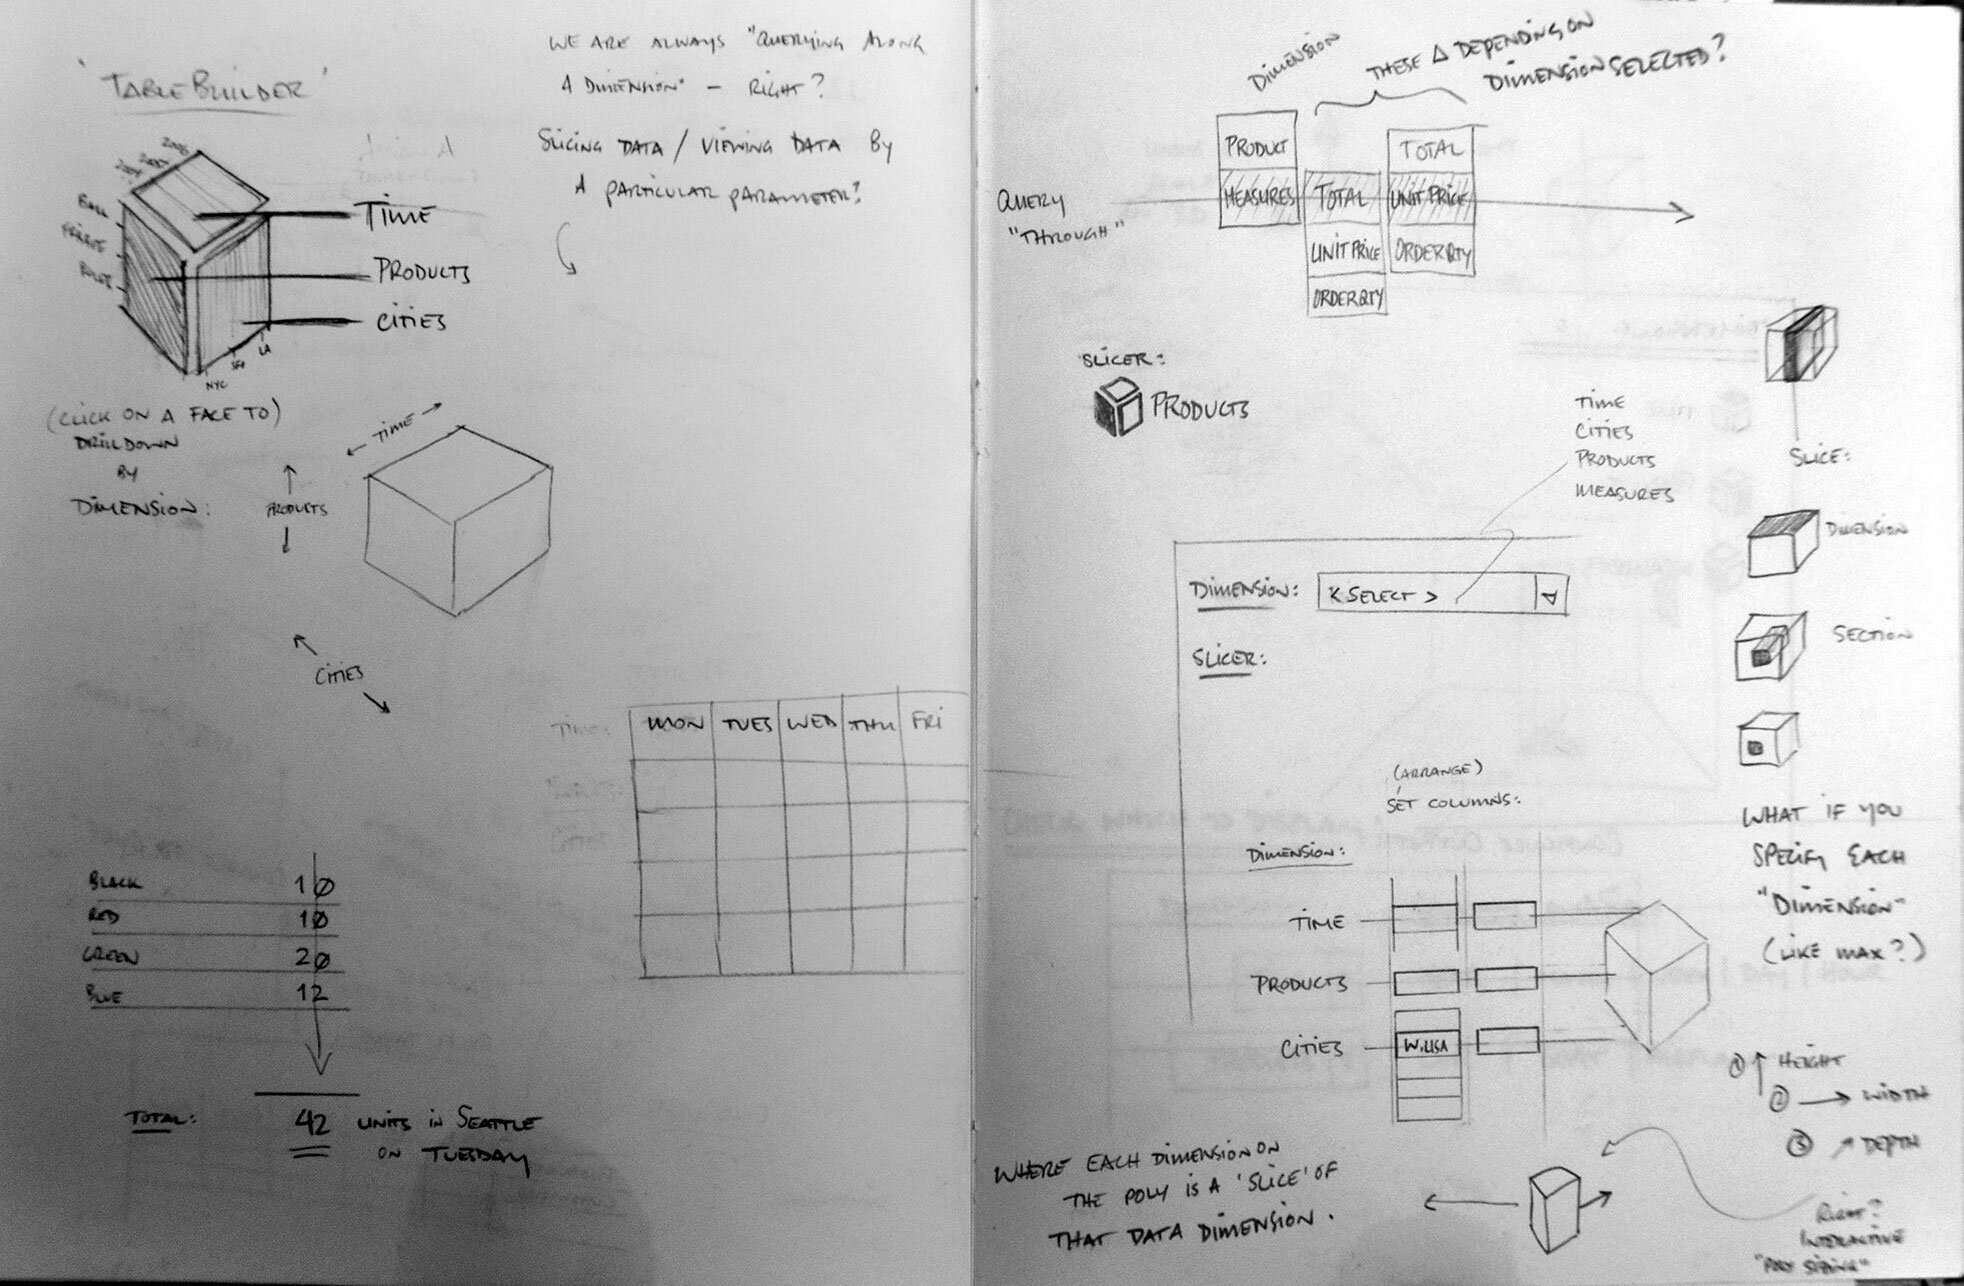 'TABLEBUILDER'
WE ARE ALWAYS "QUERYING ALONG
A DIMENSION" – RIGHT?
SLICING DATA / VIEWING DATA BY
A PARTICULAR PARAMETER?
2006
2005
TIME
PRODUCTS
CITIES
NYC
SEA
LA
(CLICK ON A FACE TO)
DRILLDOWN
BY
DIMENSION:
TIME
PRODUCTS
CITIES
TIME:
MON TUES WED THU FRI
BLACK 10
RED 10
GREEN 20
BLUE 12
TOTAL: 42 UNITS IN SEATTLE
ON TUESDAY
DIMENSION
THESE Δ DEPENDING ON
DIMENSION SELECTED?
QUERY
"THROUGH"
PRODUCT
MEASURES
TOTAL
UNIT PRICE
ORDERQTY
TOTAL
UNIT PRICE
ORDERQTY
SLICER:
PRODUCTS
TIME
CITIES
PRODUCTS
MEASURES
DIMENSION: < SELECT >
SLICER:
SLICE:
DIMENSION
SECTION
(ARRANGE)
SET COLUMNS:
DIMENSION:
TIME
PRODUCTS
CITIES
WHAT IF YOU
SPECIFY EACH
"DIMENSION"
(LIKE MAX?)
① ↑ HEIGHT
② → WIDTH
③ ↗ DEPTH
WHERE EACH DIMENSION ON
THE POLY IS A 'SLICE' OF
THAT DATA DIMENSION.
RIGHT?
INTERACTIVE
"POLY SIZING"